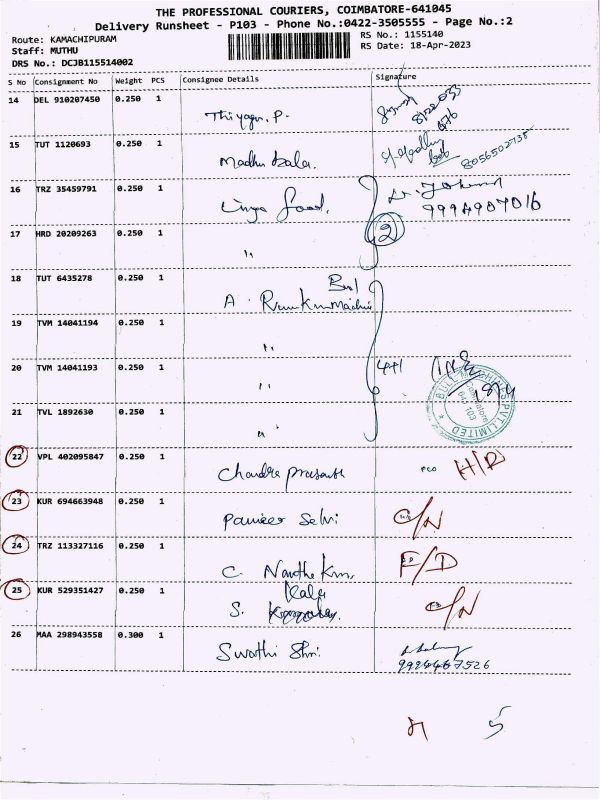 THE PROFESSIONAL COURIERS, COIMBATORE-641045
Delivery Runsheet - P103 - Phone No.:0422-3505555 - Page No.:2
Route: KAMACHIPURAM
Staff: MUTHU
DRS No.: DCJB115514002
RS No.: 1155140
RS Date: 18-Apr-2023
S No Consignment No Weight PCS Consignee Details Signature
14 DEL 910207450 0.250 1 Thiyagu. P.
15 TUT 1120693 0.250 1 Madhu bala. 8056502735
16 TRZ 35459791 0.250 1 Food. 9994907016
17 HRD 20209263 0.250 1 " 2
18 TUT 6435278 0.250 1 A. Bul
19 TVM 14041194 0.250 1 "
20 TVM 14041193 0.250 1 "
BULL MACHINES PVT. LIMITED
Coimbatore
641 103
21 TVL 1892630 0.250 1 "
22 VPL 402095847 0.250 1 Chandra prasanth H/D
23 KUR 694663948 0.250 1 Panneer Selvi C/N
24 TRZ 113327116 0.250 1 C. Nantha Km. F/D
25 KUR 529351427 0.250 1 S. Kala C/N
26 MAA 298943558 0.300 1 Swathi Shri. 9924467526
5